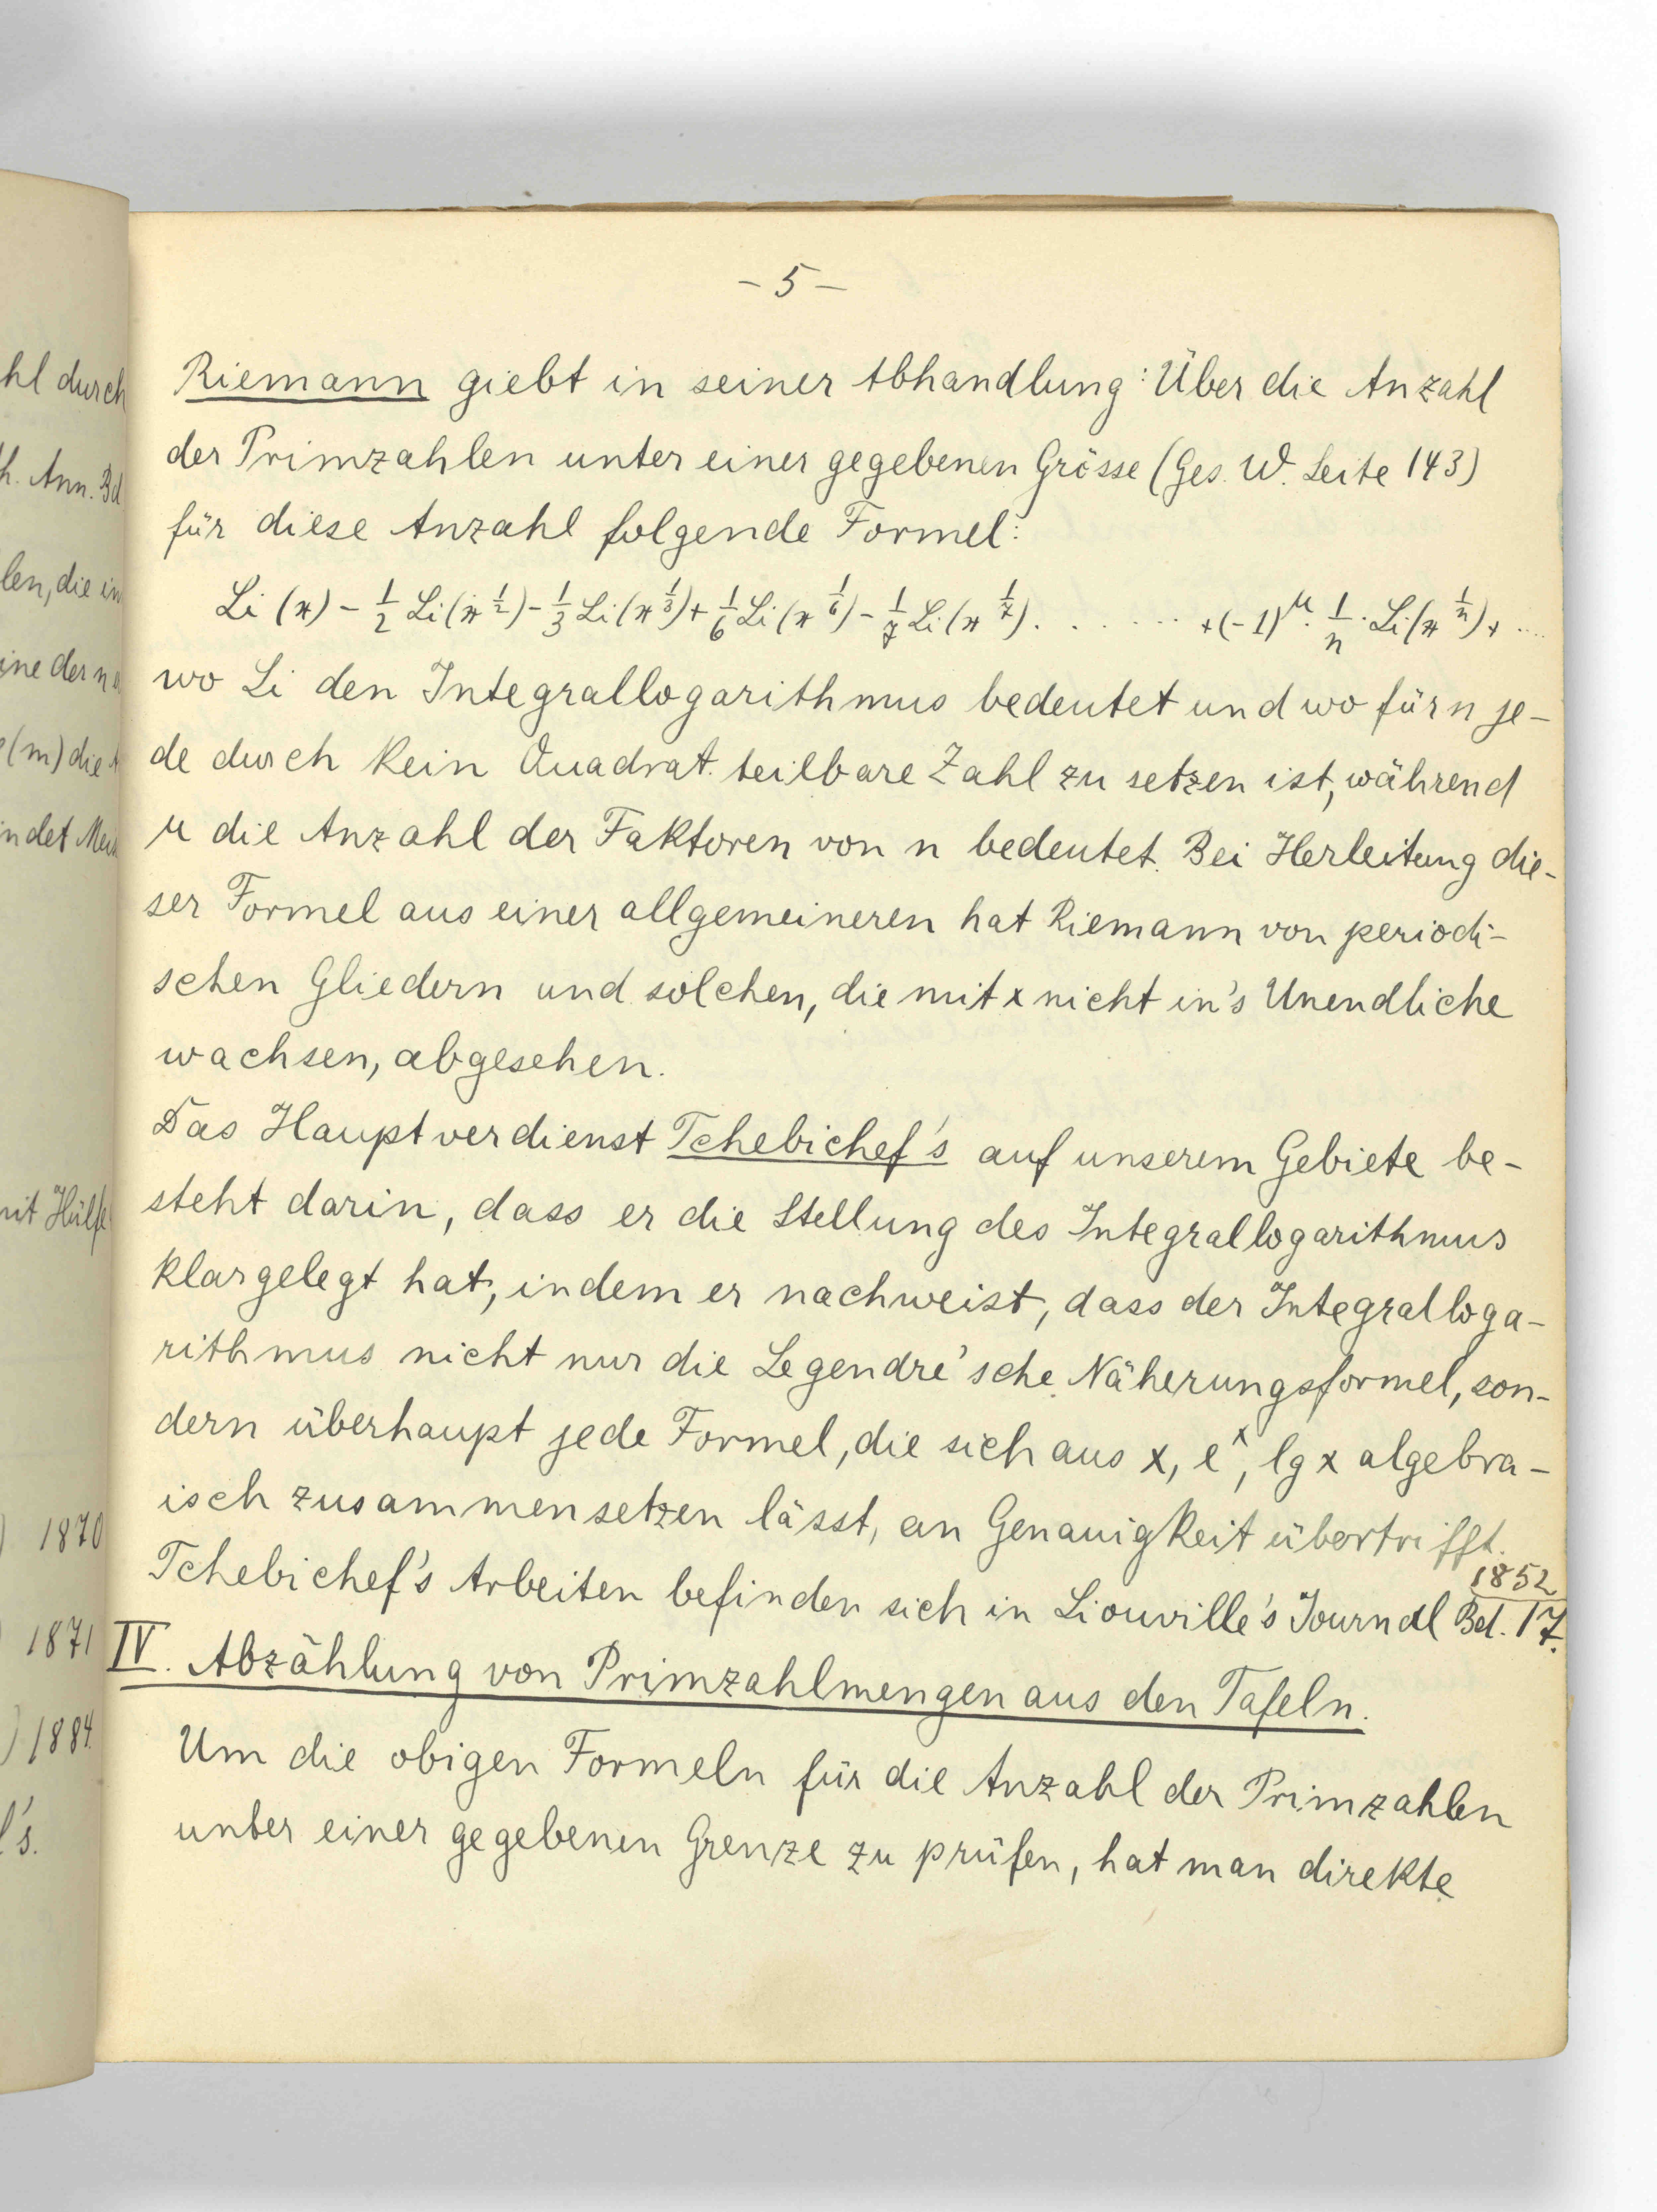 - 5 -
Riemann giebt in seiner Abhandlung: Über die Anzahl
der Primzahlen unter einer gegebenen Grösse (Ges. W. Seite 143)
für diese Anzahl folgende Formel:
Li (x) - 1/2 Li (x^1/2) - 1/3 Li (x^1/3) + 1/6 Li (x^1/6) - 1/7 Li (x^1/7) . . . . . . . +(-1)^μ · 1/n · Li (x^1/n) + ....
wo Li den Integrallogarithmus bedeutet und wo für n je-
de durch kein Quadrat teilbare Zahl zu setzen ist, während
μ die Anzahl der Faktoren von n bedeutet. Bei Herleitung die-
ser Formel aus einer allgemeineren hat Riemann von periodi-
schen Gliedern und solchen, die mit x nicht in's Unendliche
wachsen, abgesehen.
Das Hauptverdienst Tchebichef's auf unserem Gebiete be-
steht darin, dass er die Stellung des Integrallogarithmus
klargelegt hat, indem er nachweist, dass der Integralloga-
rithmus nicht nur die Legendre'sche Näherungsformel, son-
dern überhaupt jede Formel, die sich aus x, e^x, lg x algebra-
isch zusammensetzen lässt, an Genauigkeit übertrifft.
1852
Tchebichef's Arbeiten befinden sich in Liouville's Journal Bd. 17.
IV. Abzählung von Primzahlmengen aus den Tafeln.
Um die obigen Formeln für die Anzahl der Primzahlen
unter einer gegebenen Grenze zu prüfen, hat man direkte
hl durch
h. Ann. Bd
len, die in
ine der n
(m) die
ndet
mit Hülfe
) 1870
) 1871
) 1884
l's.